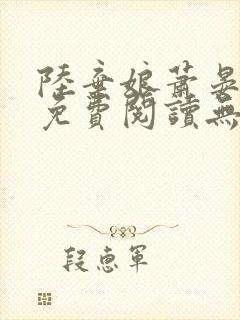 陸棄娘蕭晏
免費閱讀無
段惠軍